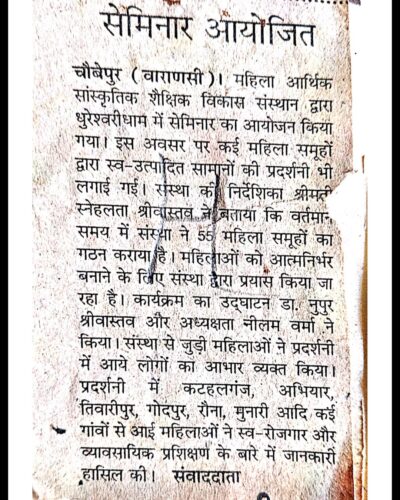 सेमिनार आयोजित
चौबेपुर (वाराणसी)। महिला आर्थिक
सांस्कृतिक शैक्षिक विकास संस्थान द्वारा
धुरेश्वरीधाम में सेमिनार का आयोजन किया
गया। इस अवसर पर कई महिला समूहों
द्वारा स्व-उत्पादित सामानों की प्रदर्शनी भी
लगाई गई। संस्था की निर्देशिका श्रीमती
स्नेहलता श्रीवास्तव ने बताया कि वर्तमान
समय में संस्था ने 55 महिला समूहों का
गठन कराया है। महिलाओं को आत्मनिर्भर
बनाने के लिए संस्था द्वारा प्रयास किया जा
रहा है। कार्यक्रम का उद्घाटन डा. नुपुर
श्रीवास्तव और अध्यक्षता नीलम वर्मा ने
किया। संस्था से जुड़ी महिलाओं ने प्रदर्शनी
में आये लोगों का आभार व्यक्त किया।
प्रदर्शनी में कटहलगंज, अभियार,
तिवारीपुर, गोदपुर, रौना, मुनारी आदि कई
गांवों से आई महिलाओं ने स्व-रोजगार और
व्यावसायिक प्रशिक्षण के बारे में जानकारी
हासिल की। संवाददाता